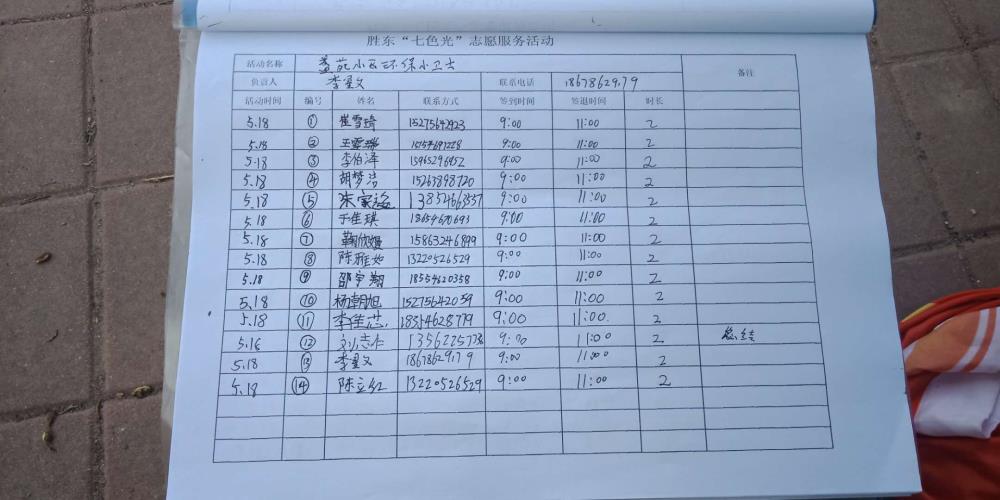 胜东“七色光”志愿服务活动
活动名称 苑小区环保小卫士 备注
负责人 李星文 联系电话 18678629179
活动时间 编号 姓名 联系方式 签到时间 签退时间 时长
5.18 ① 崔雪琦 15275642923 9:00 11:00 2
5.18 ② 王霏瑞 9:00 11:00 2
5.18 ③ 李伯泽 15965296952 9:00 11:00 2
5.18 ④ 胡梦洁 15263898720 9:00 11:00 2
5.18 ⑤ 家 13854668557 9:00 11:00 2
5.18 ⑥ 于佳琪 18654670693 9:00 11:00 2
5.18 ⑦ 鞠欣媛 15863246899 9:00 11:00 2
5.18 ⑧ 陈雅如 13220526529 9:00 11:00 2
5.18 ⑨ 邵宇翔 18554620358 9:00 11:00 2
5.18 ⑩ 杨朝旭 15275642059 9:00 11:00 2
5.18 ⑪ 李佳芯 18354628779 9:00 11:00 2
5.16 ⑫ 刘志 13562257738 9:00 11:00 2 总结
5.18 ⑬ 李星文 18678629179 9:00 11:00 2
5.18 ⑭ 陈立红 13220526529 9:00 11:00 2